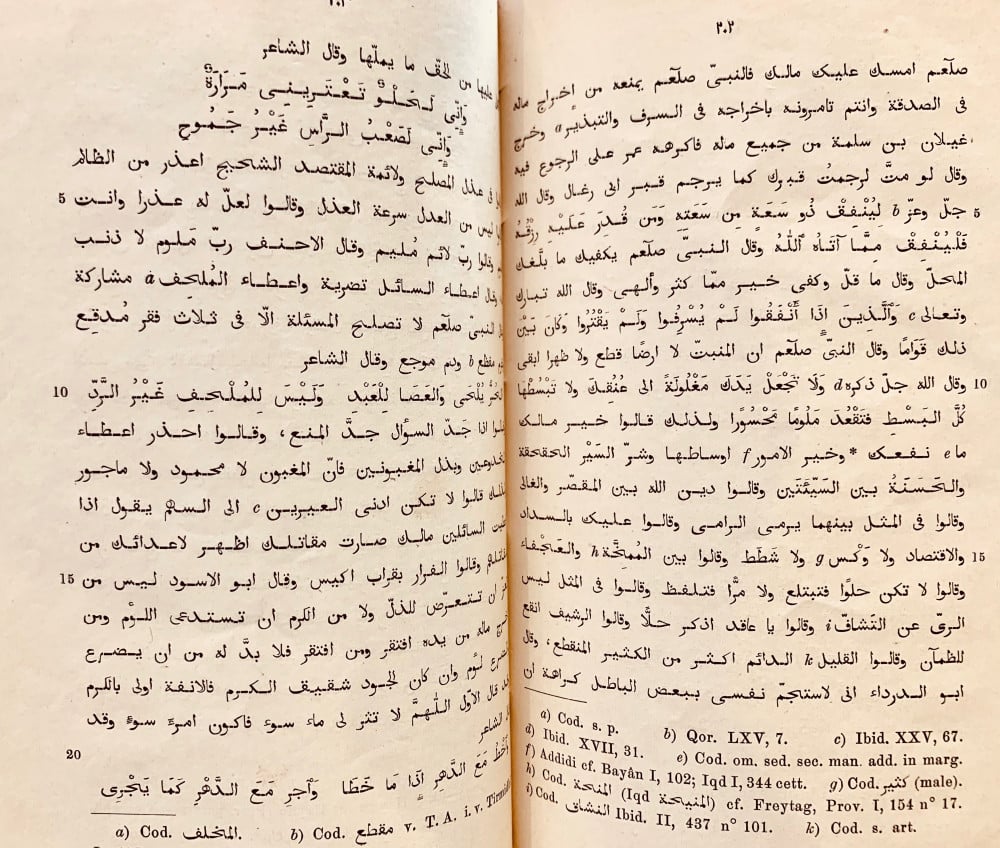 ٢٠٢
صلّعم امسك عليك مالك فالنبىّ صلّعم يمنعه من اخراج ماله
فى الصدقة وانتم تامرونه باخراجه فى السرف والتبذير a وخرج
غيلان بن سلمة من جميع ماله فاكرهه عمر على الرجوع فيه
وقال لو متَّ لرجمتُ قبرك كما يرجم قبر ابى رغال وقال الله
5 جلّ وعزّ b لِيُنْفِقْ ذُو سَعَةٍ مِن سَعَتِهِ وَمَن قُدِرَ عَلَيْهِ رِزْقُهُ
فَلْيُنْفِقْ مِمَّا آتَاهُ ٱللّٰهُ وقال النبىّ صلّعم يكفيك ما بلّغك
المحلّ وقال ما قلّ وكفى خير ممّا كثر وألهى وقال الله تبارك
وتعالى c وَٱلَّذِينَ اذَا أَنْفَقُوا لَمْ يُسْرِفُوا وَلَمْ يَقْتُرُوا وَكَانَ بَيْنَ
ذلك قَوَامًا وقال النبىّ صلّعم ان المنبتّ لا ارضًا قطع ولا ظهرا ابقى
10 وقال الله جلّ ذكره d وَلَا تَجْعَلْ يَدَكَ مَغْلُولَةً الى عُنُقِكَ ولا تَبْسُطْهَا
كُلَّ البَسْطِ فَتَقْعُدَ مَلُومًا مَحْسُورًا ولذلك قالوا خير مالك
ما e نفعك * وخير الامور f اوساطها وشرّ السَيْر الحقحقة
والحَسَنَةُ بين السَيّئتَين وقالوا دين الله بين المقصّر والغالى
وقالوا فى المثل بينهما يرمى الرامى وقالوا عليك بالسداد
15 والاقتصاد ولا وَكْس g ولا شَطَط وقالوا بين المُمِخَّة h والعَجْفاء
وقالوا لا تكن حلوًا فتبتلع ولا مرًّا فتلفظ وقالوا فى المثل ليس
الرىّ عن التَشافّ i وقالوا يا عاقد اذكر حلًّا وقالوا الرشيف انقع
للظمآن وقالوا القليل k الدائم اكثر من الكثير المنقطع، وقال
ابو الدرداء انى لاستجمّ نفسى ببعض الباطل كراهة ان
a) Cod. s. p. b) Qor. LXV, 7. c) Ibid. XXV, 67.
d) Ibid. XVII, 31. e) Cod. om. sed. sec. man. add. in marg.
f) Addidi cf. Bayân I, 102; Iqd I, 344 cett. g) Cod. كثير (male).
h) Cod. المنحة (Iqd المنيحة) cf. Freytag, Prov. I, 154 n° 17.
i) Cod. النشاف Ibid. II, 437 n° 101. k) Cod. s. art.
عليها من الحقّ ما يملّها وقال الشاعر
وَإِنِّى لَحُلْوٌ تَعْتَرِينِى مَرَارَةٌ
وَإِنِّى لَصَعْبُ الرَّأسِ غَيْرُ جَمُوحِ
فى عذل المصلح ولائمة المقتصد الشحيح اعذر من الظالم
5 ليس من العدل سرعة العذل وقالوا لعلّ له عذرا وانت
وقالوا ربّ لائم مُليم وقال الاحنف ربّ مَلوم لا ذنب
اعطاء السائل تضرية واعطاء المُلحِف a مشاركة
النبىّ صلّعم لا تصلح المسئلة الّا فى ثلاث فقر مُدقِع
مفظع b ودم موجع وقال الشاعر
10 الحُرُّ يُلْحَى وَالعَصَا لِلْعَبْدِ وَلَيْسَ لِلمُلْحِفِ غَيْرُ الرَّدِّ
اذا جَدّ السؤال جدَّ المنع، وقالوا احذر اعطاء
المخدوعين وبذل المغبونين فانّ المغبون لا محمود ولا ماجور
قالوا لا تكن ادنى العيرين c الى السهم يقول اذا
السائلين مالك صارت مقاتلك اظهر لاعدائك من
15 وقالوا الفرار بقراب اكيس وقال ابو الاسود ليس من
ان تتعرّض للذلّ ولا من الكرم ان تستدعى اللؤم ومن
ماله من يده افتقر ومن افتقر فلا بدّ له من ان يضرع
لؤم وان كان الجود شقيق الكرم فالانفة اولى بالكرم
قال الاوّل اللّهمّ لا تثر لى ماء سوء فاكون امرءَ سوءٍ وقد
الشاعر
20 وَٱخْطُ مَعَ الدَّهْرِ اذَا مَا خَطَا وَٱجْرِ مَعَ الدَّهْرِ كَمَا يَجْرِى
a) Cod. المخلف. b) Cod. مقطع v. T. A. i. v.